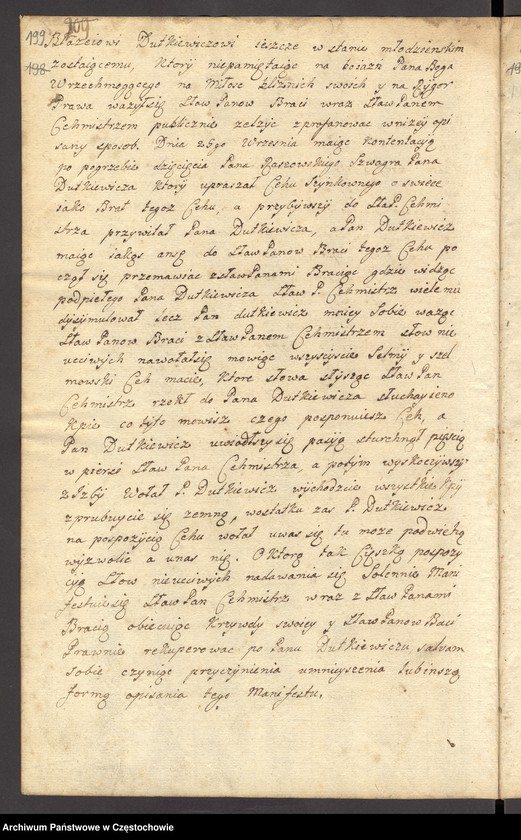 199. 209
198
Błazeiowi Dutkiewiczowi ieszcze w stanie młodzienskim
zostaiącemu, ktory niepamiętaiąc na boiaźń Pana Boga
Wrzechmogącego na Miłosc bliznich swoich y na Rygor
Prawa wazył się Sław Panow Braci wraz Sław Panem
Cechmistrzem publicznie zelzyc zprofanowac w nizey opi
sany sposob. Dnia 25go Wrzesnia maiąc Kontentacyą
po pogrzebie dziecięcia Pana Szwagra Pana
Dutkiewicza ktory upraszał Cechu o swiece
iako Brat tegoz Cechu, a przybywszy do Cechmi
strza przywitał Pana Dutkiewicza, a Pan Dutkiewicz
maiąc iakąs ansę do Sław Panow Braci tegoz Cechu po
czął się przemawiac z Sław Panami Bracią gdzie widząc
podpiłego Pana Dutkiewicza Sław P. Cechmistrz wiele mu
dysymulował lecz Pan dutkiewicz mniey sobie waząc
Sław Panow Braci z Sław Panem Cechmistrzem słow nie
ucciwych nawołał mowiąc wszyscyscie y szel
mowski Cech macie, ktore słowa słysząc Sław Pan
Cechmistrz rzekł do Pana Dutkiewicza słuchay
co ty to mowisz czego posponuiesz Cech, a
Pan Dutkiewicz uwiodłszy się pasyą sturchnął pięscią
w piersi Sław Pana Cechmistrza, a potym wyskoczywszy
z Izby Wołał P. Dutkiewicz wychodzcie wszystkie
zprubuycie się zemną, wostatku zas P. Dutkiewicz
na pospozycią Cechu wołał u was się tu moze podwiką
wyzwolic a u nas nie. O ktorą tak cięszką pospozy
cyą Słow nieucciwych nadawania się Solennie Mani
festuie się Sław Pan Cechmistrz wraz z Sław Panami
Bracią obiecuiąc Krzywdy swoiey y Sław Panow Baci
Prawnie rekuperowac po Panu Dutkiewiczu salvam
sobie czyniąc przyczynienia umnieyszenia lub inszą
formą opisania tego Manifestu.
Archiwum Państwowe w Częstochowie